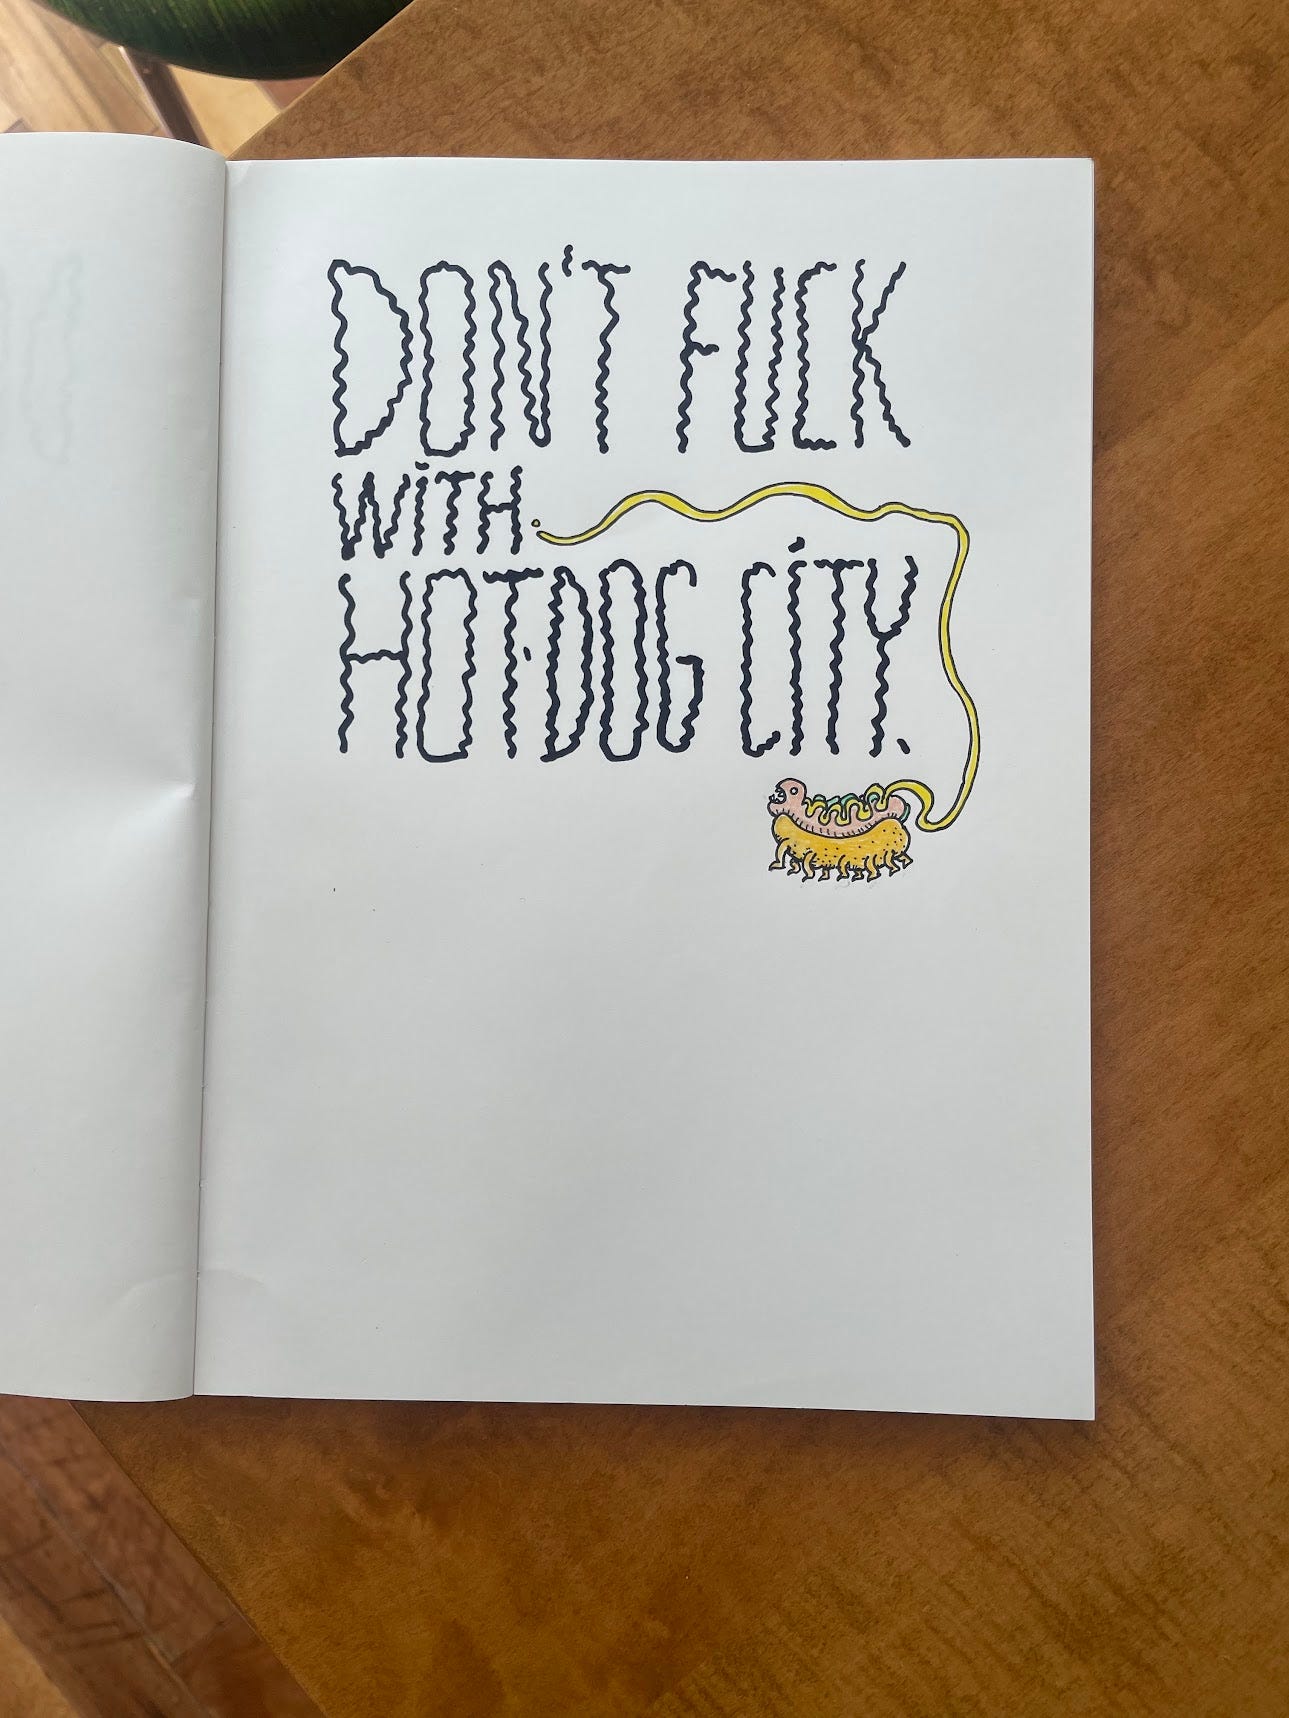 DON'T FUCK
WiTH
HOT-DOG CiTY.